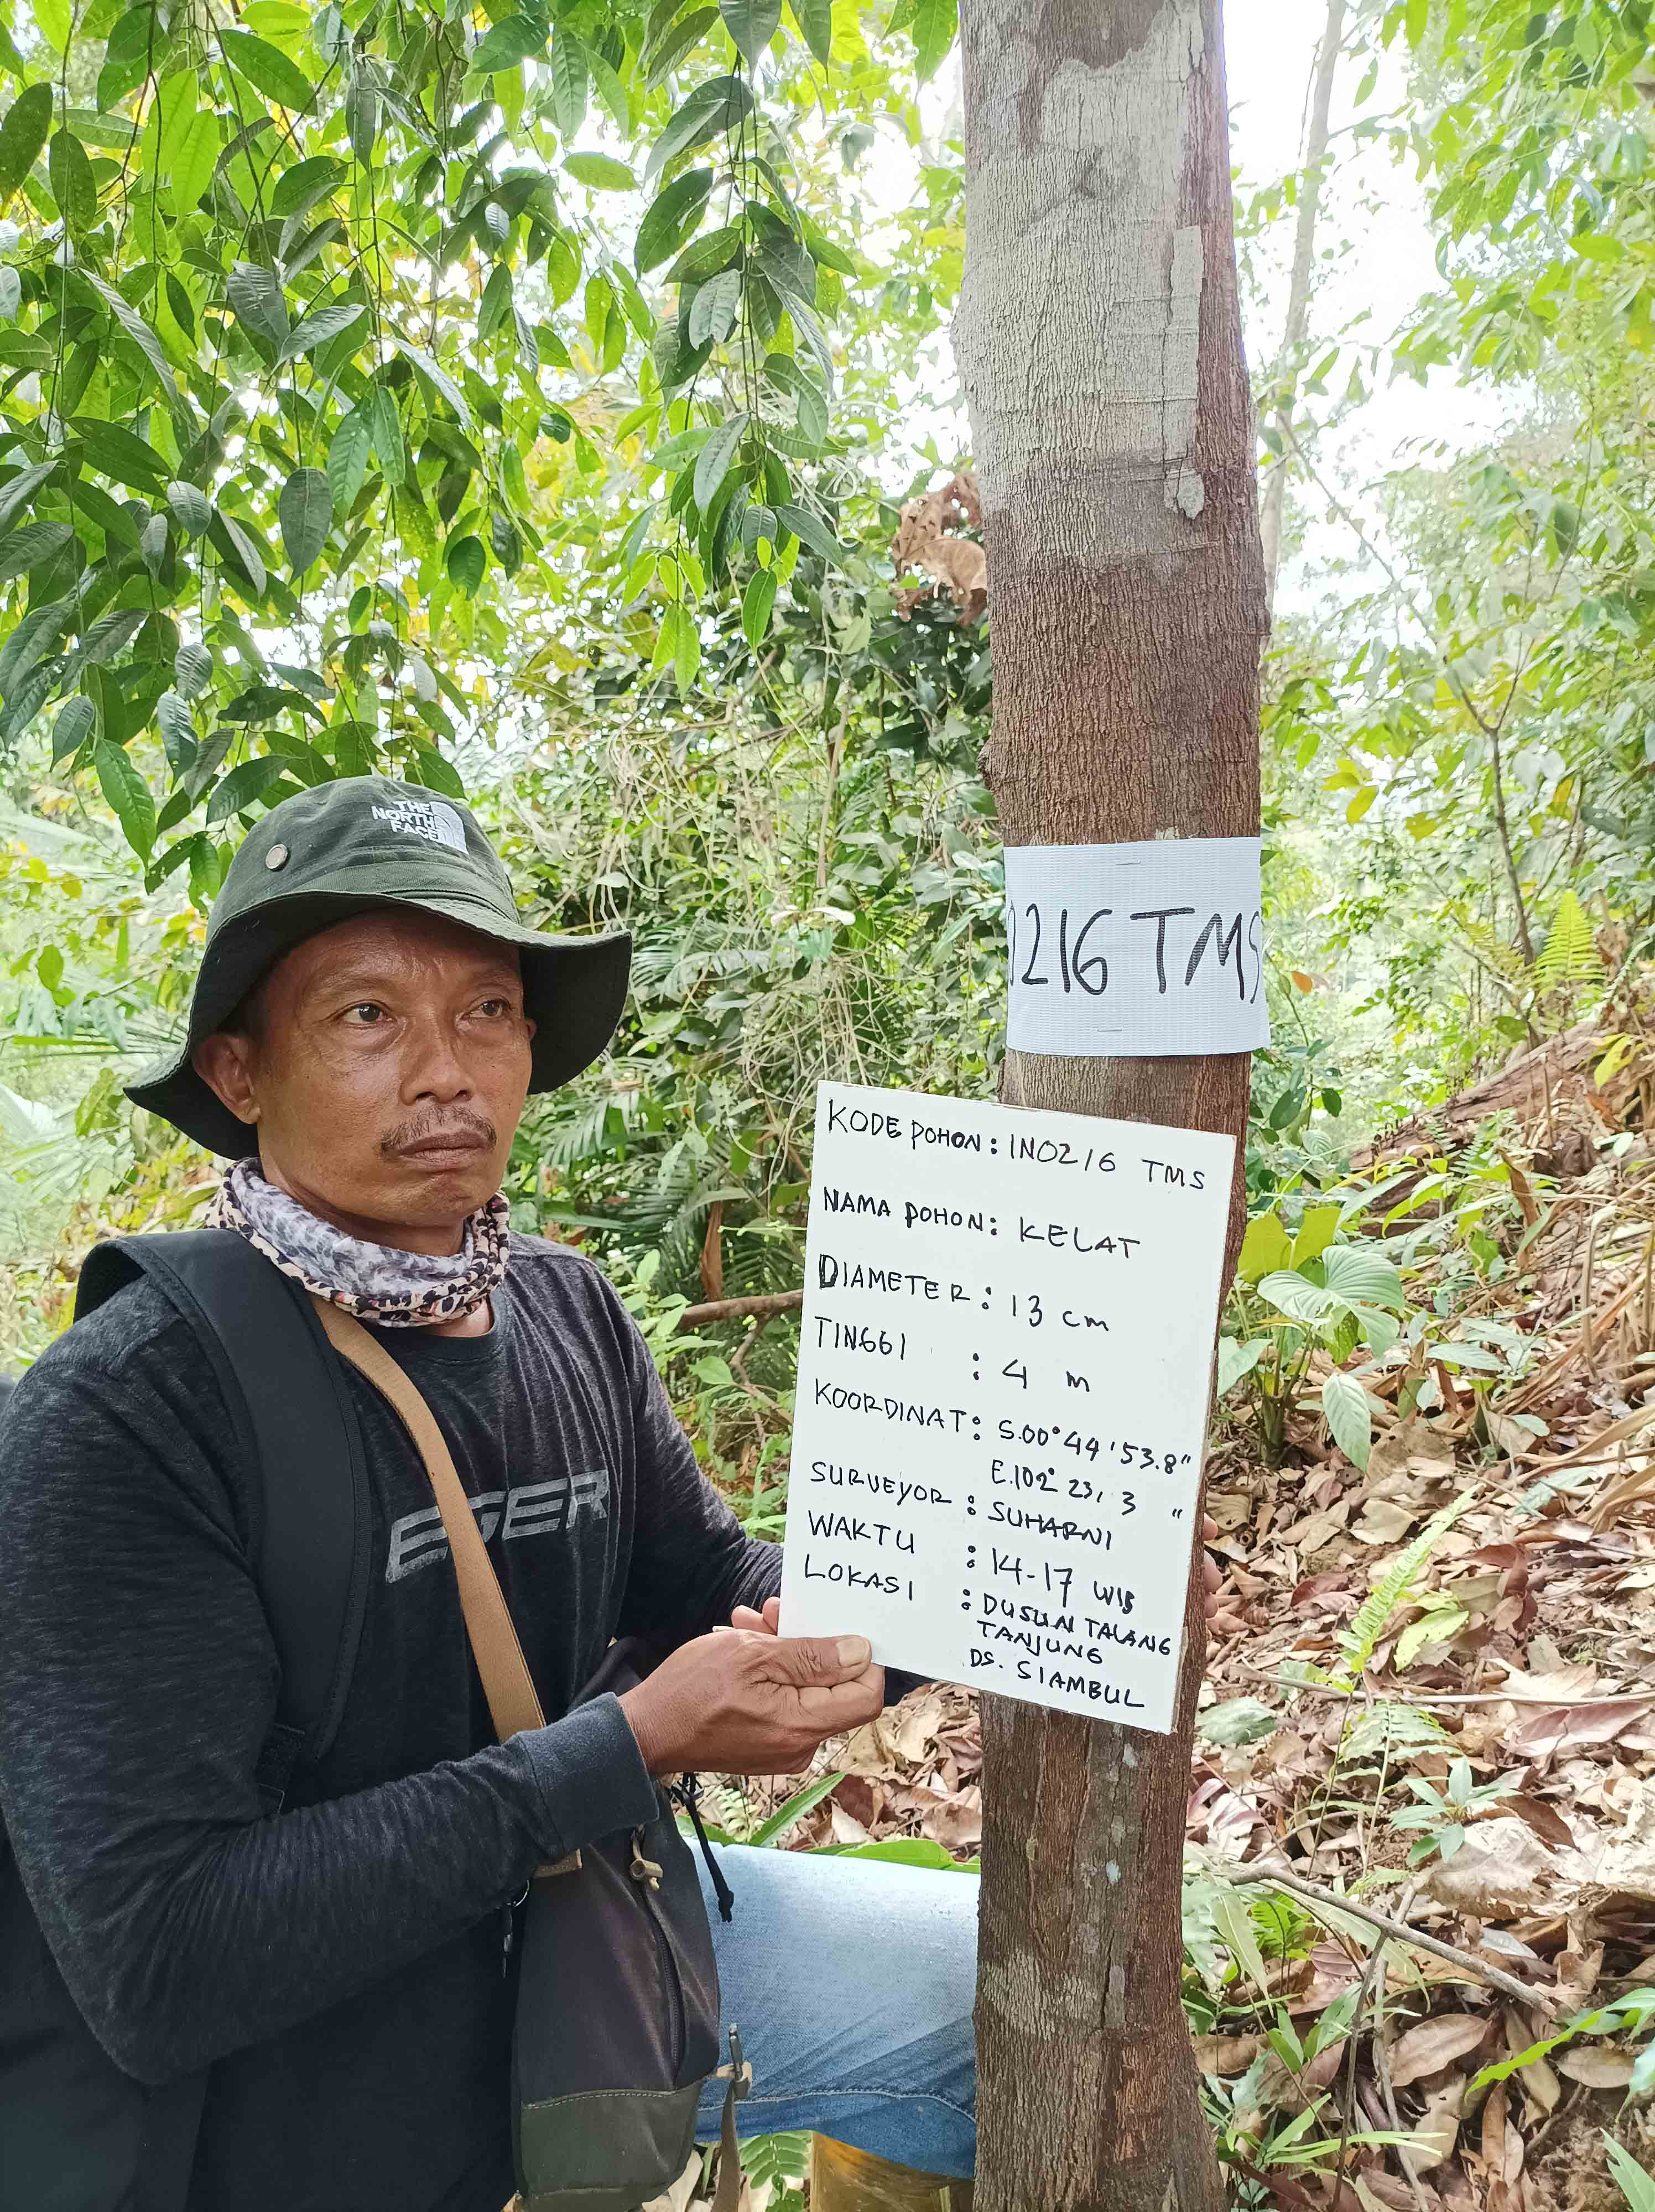 THE
NORTH
FACE
0216 TMS
KODE POHON : IN0216 TMS
NAMA POHON : KELAT
DIAMETER : 13 cm
TINGGI : 4 m
KOORDINAT : S.00°44'53.8"
E.102° 23, 3 "
SURVEYOR : SUHARNI
WAKTU : 14-17 WIB
LOKASI : DUSUN TALANG
TANJUNG
DS. SIAMBUL